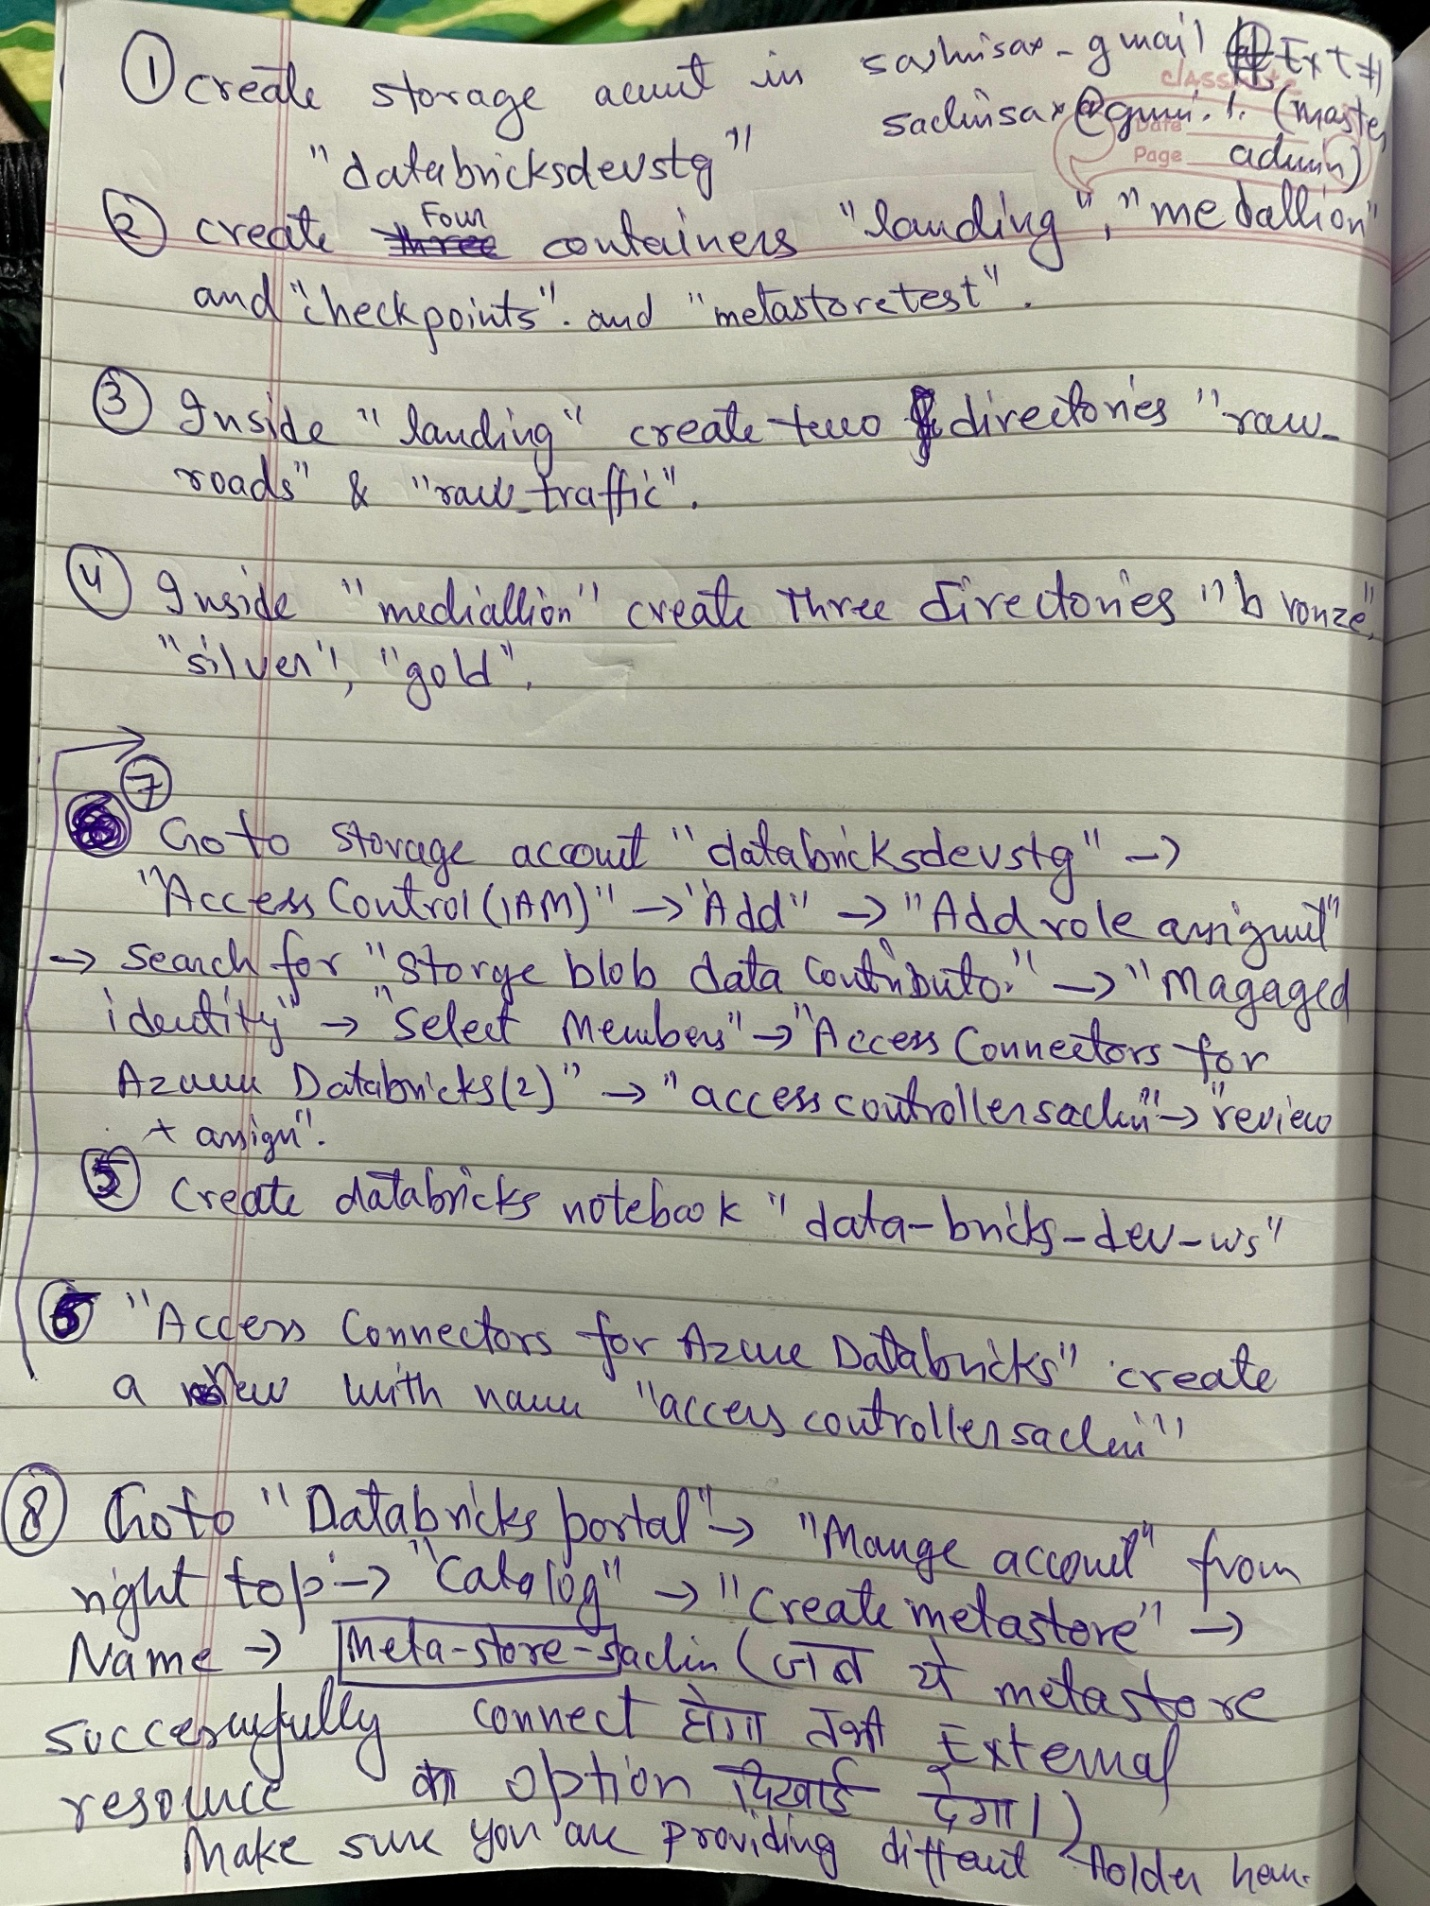 ① create storage accout in sashisax-gmail #Ext#
classmate
sachinsax@gmai.l. (master
Date
Page admin)
"databricksdevstg"
② create Four containers "landing", "medallion"
and "checkpoints". and "metastoretest".
③ Inside "landing" create two directories "raw_
roads" & "raw_traffic".
④ Inside "mediallion" create Three directories "bronze",
"silver", "gold".
⑦
Go to storage account "databricksdevstg" ->
"Access Control (IAM)" -> "Add" -> "Add role assignmt"
-> Search for "Storge blob data Contributor" -> "Magaged
identity" -> "Select Members" -> "Access Connectors for
Azure Databricks(2)" -> "accesscontrollersachin" -> "review
+ assign".
⑤ Create databricks notebook "data-bricks-dev-ws"
⑥ "Access Connectors for Azure Databricks" create
a New with name "accesscontrollersachin"
⑧ Goto "Databricks portal" -> "Mange account" from
right top -> "Catalog" -> "Create metastore" ->
Name -> Meta-store-sachin (जब ये metastore
successfully connect होगा तभी External
resource का option दिखाई देगा।)
Make sure you are providing different folder here